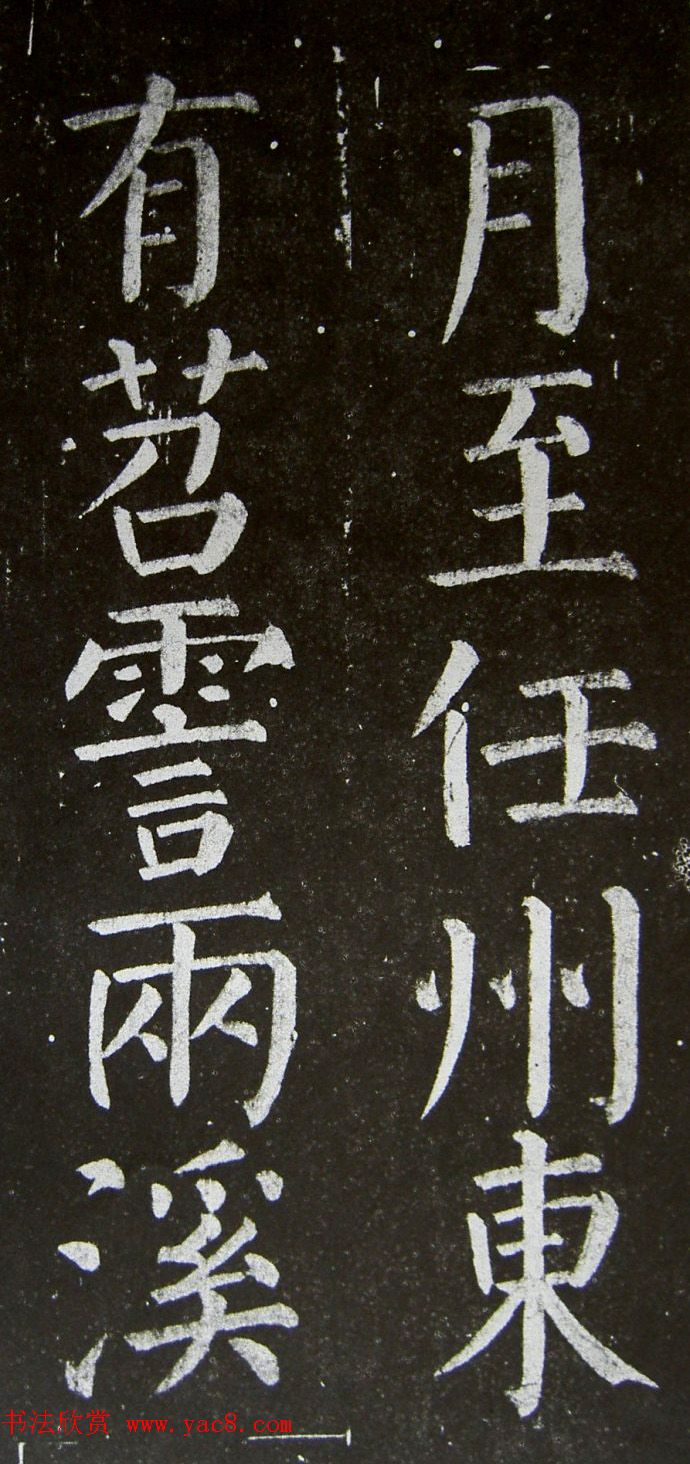 月至任州東
有苕霅兩溪
书法欣赏 www.yac8.com